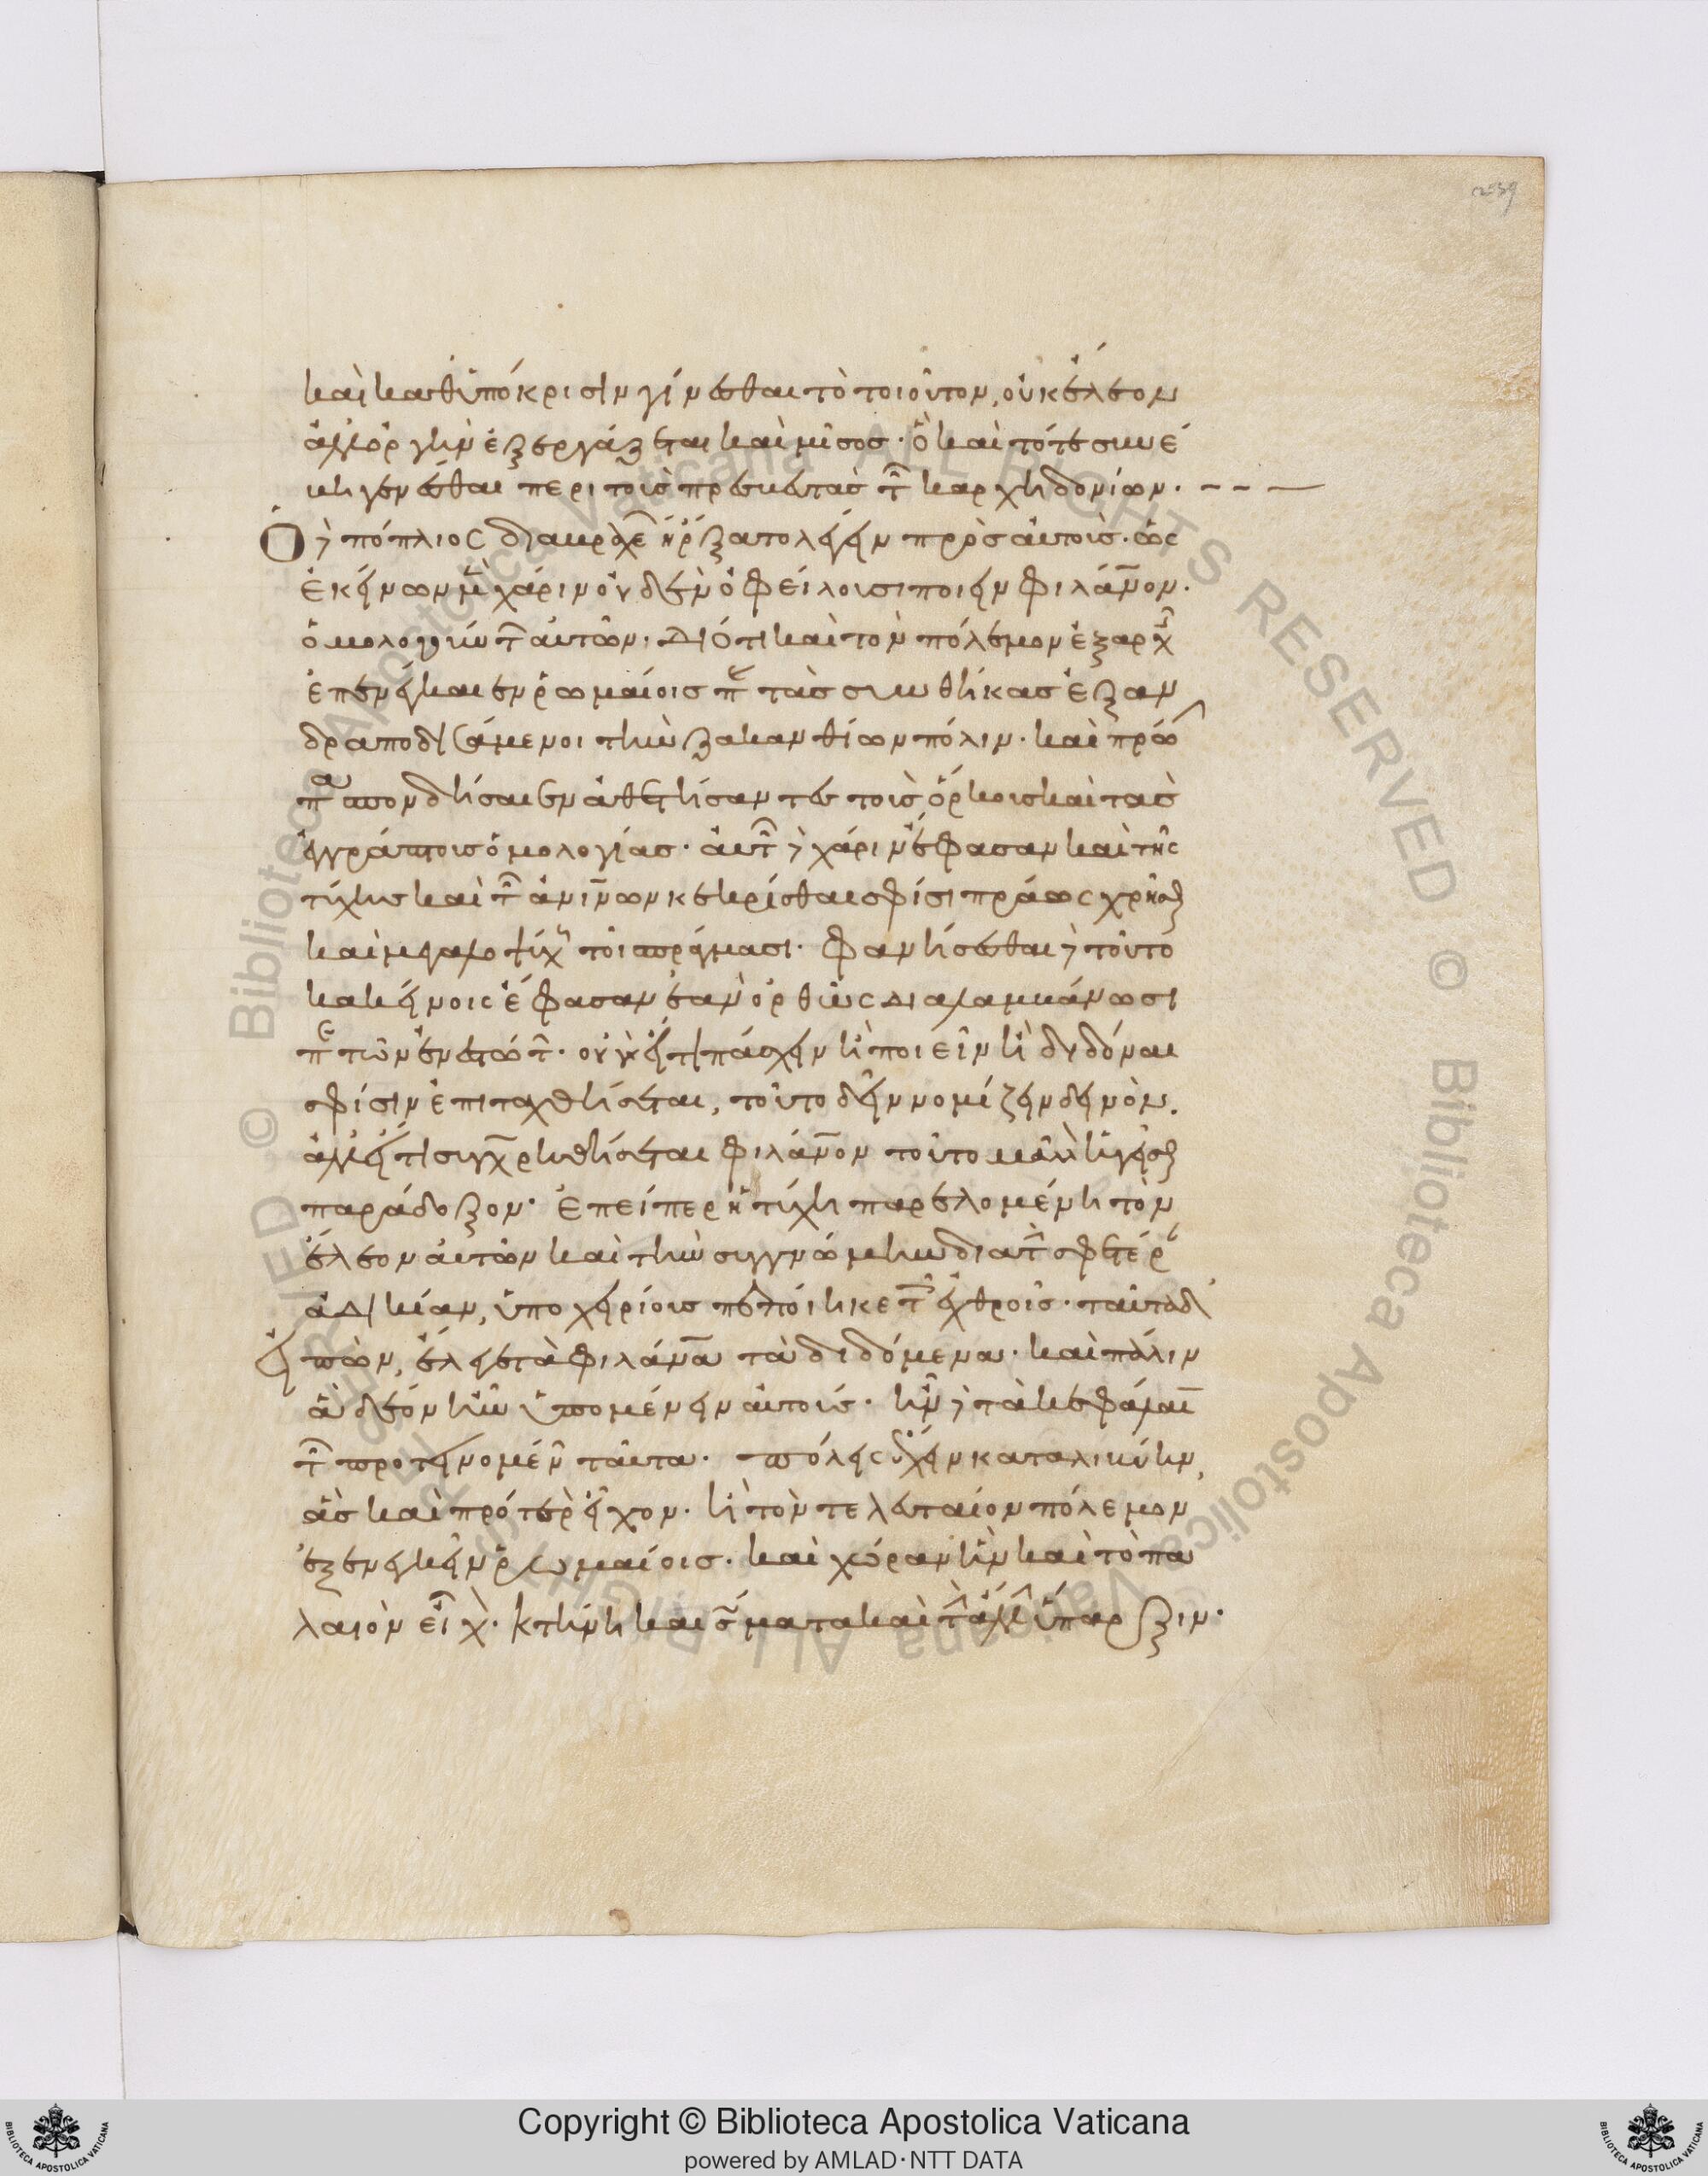 καὶ καθ' ὑπόκρισιν γίνεσθαι τὸ τοιοῦτον, οὐκ ἔλεον
ἀλλ' ὀργὴν ἐξεργάζεται καὶ μῖσος· ὃ καὶ τότε συνέ
βη γενέσθαι περὶ τοὺς πρέσβεις τῶν καρχηδονίων·
Ὁ δὲ πόπλιος διαβραχέων ἤρξατο λέγειν πρὸς αὐτοὺς· ὡς
ἐκείνων μὲν χάριν οὐδὲν ὀφείλουσι ποιεῖν φιλάνθρωπον·
ὁμολογούντων αὐτῶν· διότι καὶ τὸν πόλεμον ἐξαρχῆς
ἐπενέγκαιεν ῥωμαίοις παρὰ τὰς συνθήκας ἐξαν
δραποδισάμενοι τὴν ζακανθίων πόλιν· καὶ πρώην
παρασπονδήσαιεν ἀθετήσαντες τοὺς ὅρκους καὶ τὰς
ἐγγράπτους ὁμολογίας· αὐτῶν δὲ χάριν ἔφασαν καὶ τῆς
τύχης καὶ τῶν ἀνθρωπίνων κεκρίσθαι σφίσι πράως χρῆσθαι
καὶ μεγαλοψύχως τοῖς πράγμασι· φανήσεσθαι δὲ τοῦτο
κακείνοις ἔφασαν ἐὰν ὀρθῶς διαλαμβάνωσι
περὶ τῶν ἐνεστώτων· οὐ γὰρ εἴ τι πάσχειν ἢ ποιεῖν ἢ διδόναι
σφίσιν ἐπιταχθήσεται, τοῦτο δεῖν νομίζειν δεινὸν.
ἀλλ' εἴ τι συγχωρηθήσεται φιλάνθρωπον τοῦτο μᾶλλον ἡγεῖσθαι
παράδοξον· ἐπείπερ ἡ τύχη παρελομένη τὸν
ἔλεον αὐτῶν καὶ τὴν συγγνώμην διὰ τὴν σφετέραν
ἀδικίαν, ὑποχειρίους πεποίηκε τοῖς ἐχθροῖς· ταῦτα δ'
εἰπὼν, ἔλεγε τὰ φιλάνθρωπα τὰ διδόμενα· καὶ πάλιν
ἃ δέον ἦν ὑπομένειν αὐτούς· ἦν δὲ τὰ κεφάλαια
τῶν προτεινομένων ταῦτα· πόλεις ἔχειν κατα λιβύην,
ἃς καὶ πρότερον εἶχον· ἢ τὸν τελευταίον πόλεμον
ἐξενεγκεῖν ῥωμαίοις· καὶ χώραν ἣν καὶ τὸ πα
λαιὸν εἶχον· κτήνη καὶ σώματα καὶ τὴν ἄλλην ὕπαρξιν·
Copyright © Biblioteca Apostolica Vaticana
powered by AMLAD·NTT DATA